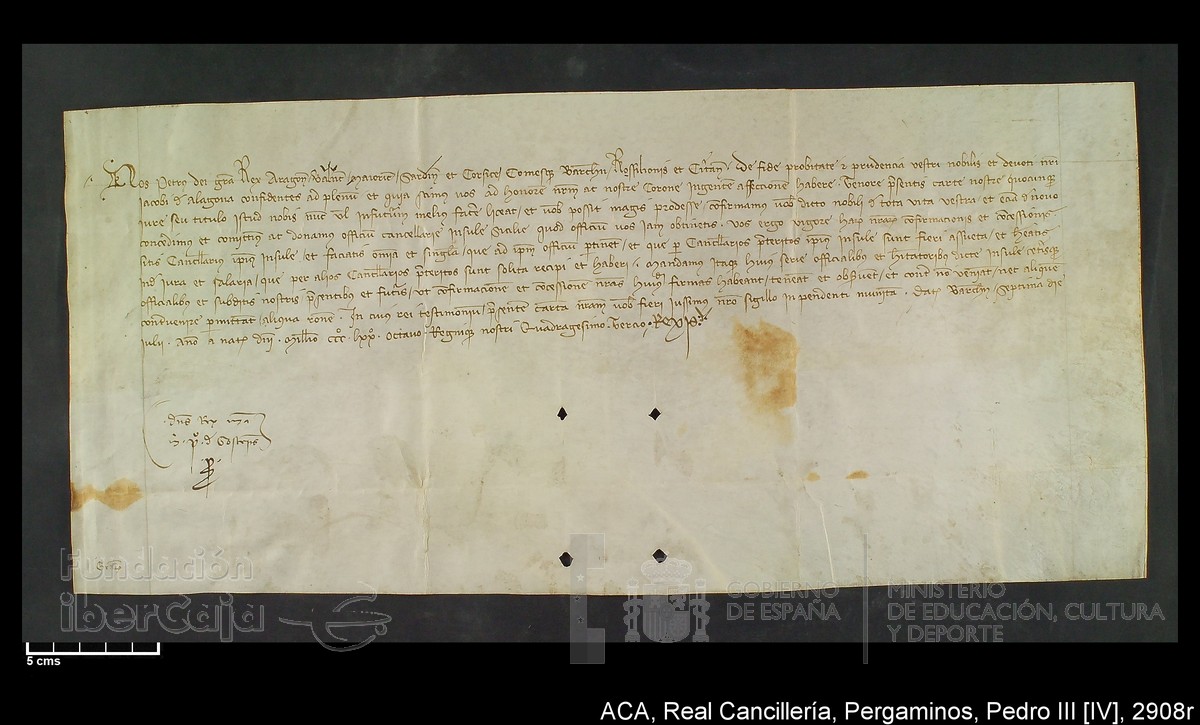 Nos Petrus dei grã Rex Aragon, Valēn, Maioric, Sardin et Corsice, Comesq Barchñ, Rossilionis et Citañ. De fide probitate & prudencia vestri nobilis et devoti nri
Jacobi d Alagona confidentes ad plenũ et quia scim vos ad honorē nrm ac nostre Corone ingentē affeccione habere. Tenore psentis carte nostre quocunq
iure seu titulo istud nobis nũc vl infuturũ meliꝰ facẽ liceat, et vob possit magis prodesse, confirmamꝰ vob dicto nobili d tota vita vestra et eciã d novo
concedimꝰ et comittimꝰ ac donamꝰ officiũ cancellarie insule Sicilie quod officiũ vos iam obtinetis. Vos ergo vigore haꝝ nraꝝ confirmacionis et cõcessionis
sitis Cancellariꝰ ipiꝰ insule, et faciatis om̃ia et singla, que ad ipm officiũ ptinet, et que p Cancellarios pteritos ipiꝰ insule sunt fieri assueta, et heatis
ind iura et salaria, que per alios Cancellarios pteritos sunt solita recipi et haberi. Mandamꝰ itaq huiꝰ serie officialibꝰ et hitatoribꝰ dicte insule cetisq
officialibꝰ et subditis nostris psentibꝰ et futis, ut confirmacionē et cõcessionē nras huiꝰ firmas habeant, teneat et obsvet, et cont no veniat, nec aliquē
contvenire pmittat, aliqua rone. In cuiꝰ rei testimoniũ psentē cartã nram vob fieri iussimꝰ nro sigillo inpendenti munitã. Dat Barchñ, Septima die
iulii. Año a nat dñi. Millio ccc lxx octavo. Regniq nostri Quadragesimo Tercio. Rex P.
dñs Rex
P. d
Fundación
iberCaja
GOBIERNO
DE ESPAÑA
MINISTERIO
DE EDUCACIÓN, CULTURA
Y DEPORTE
5 cms
ACA, Real Cancillería, Pergaminos, Pedro III [IV], 2908r